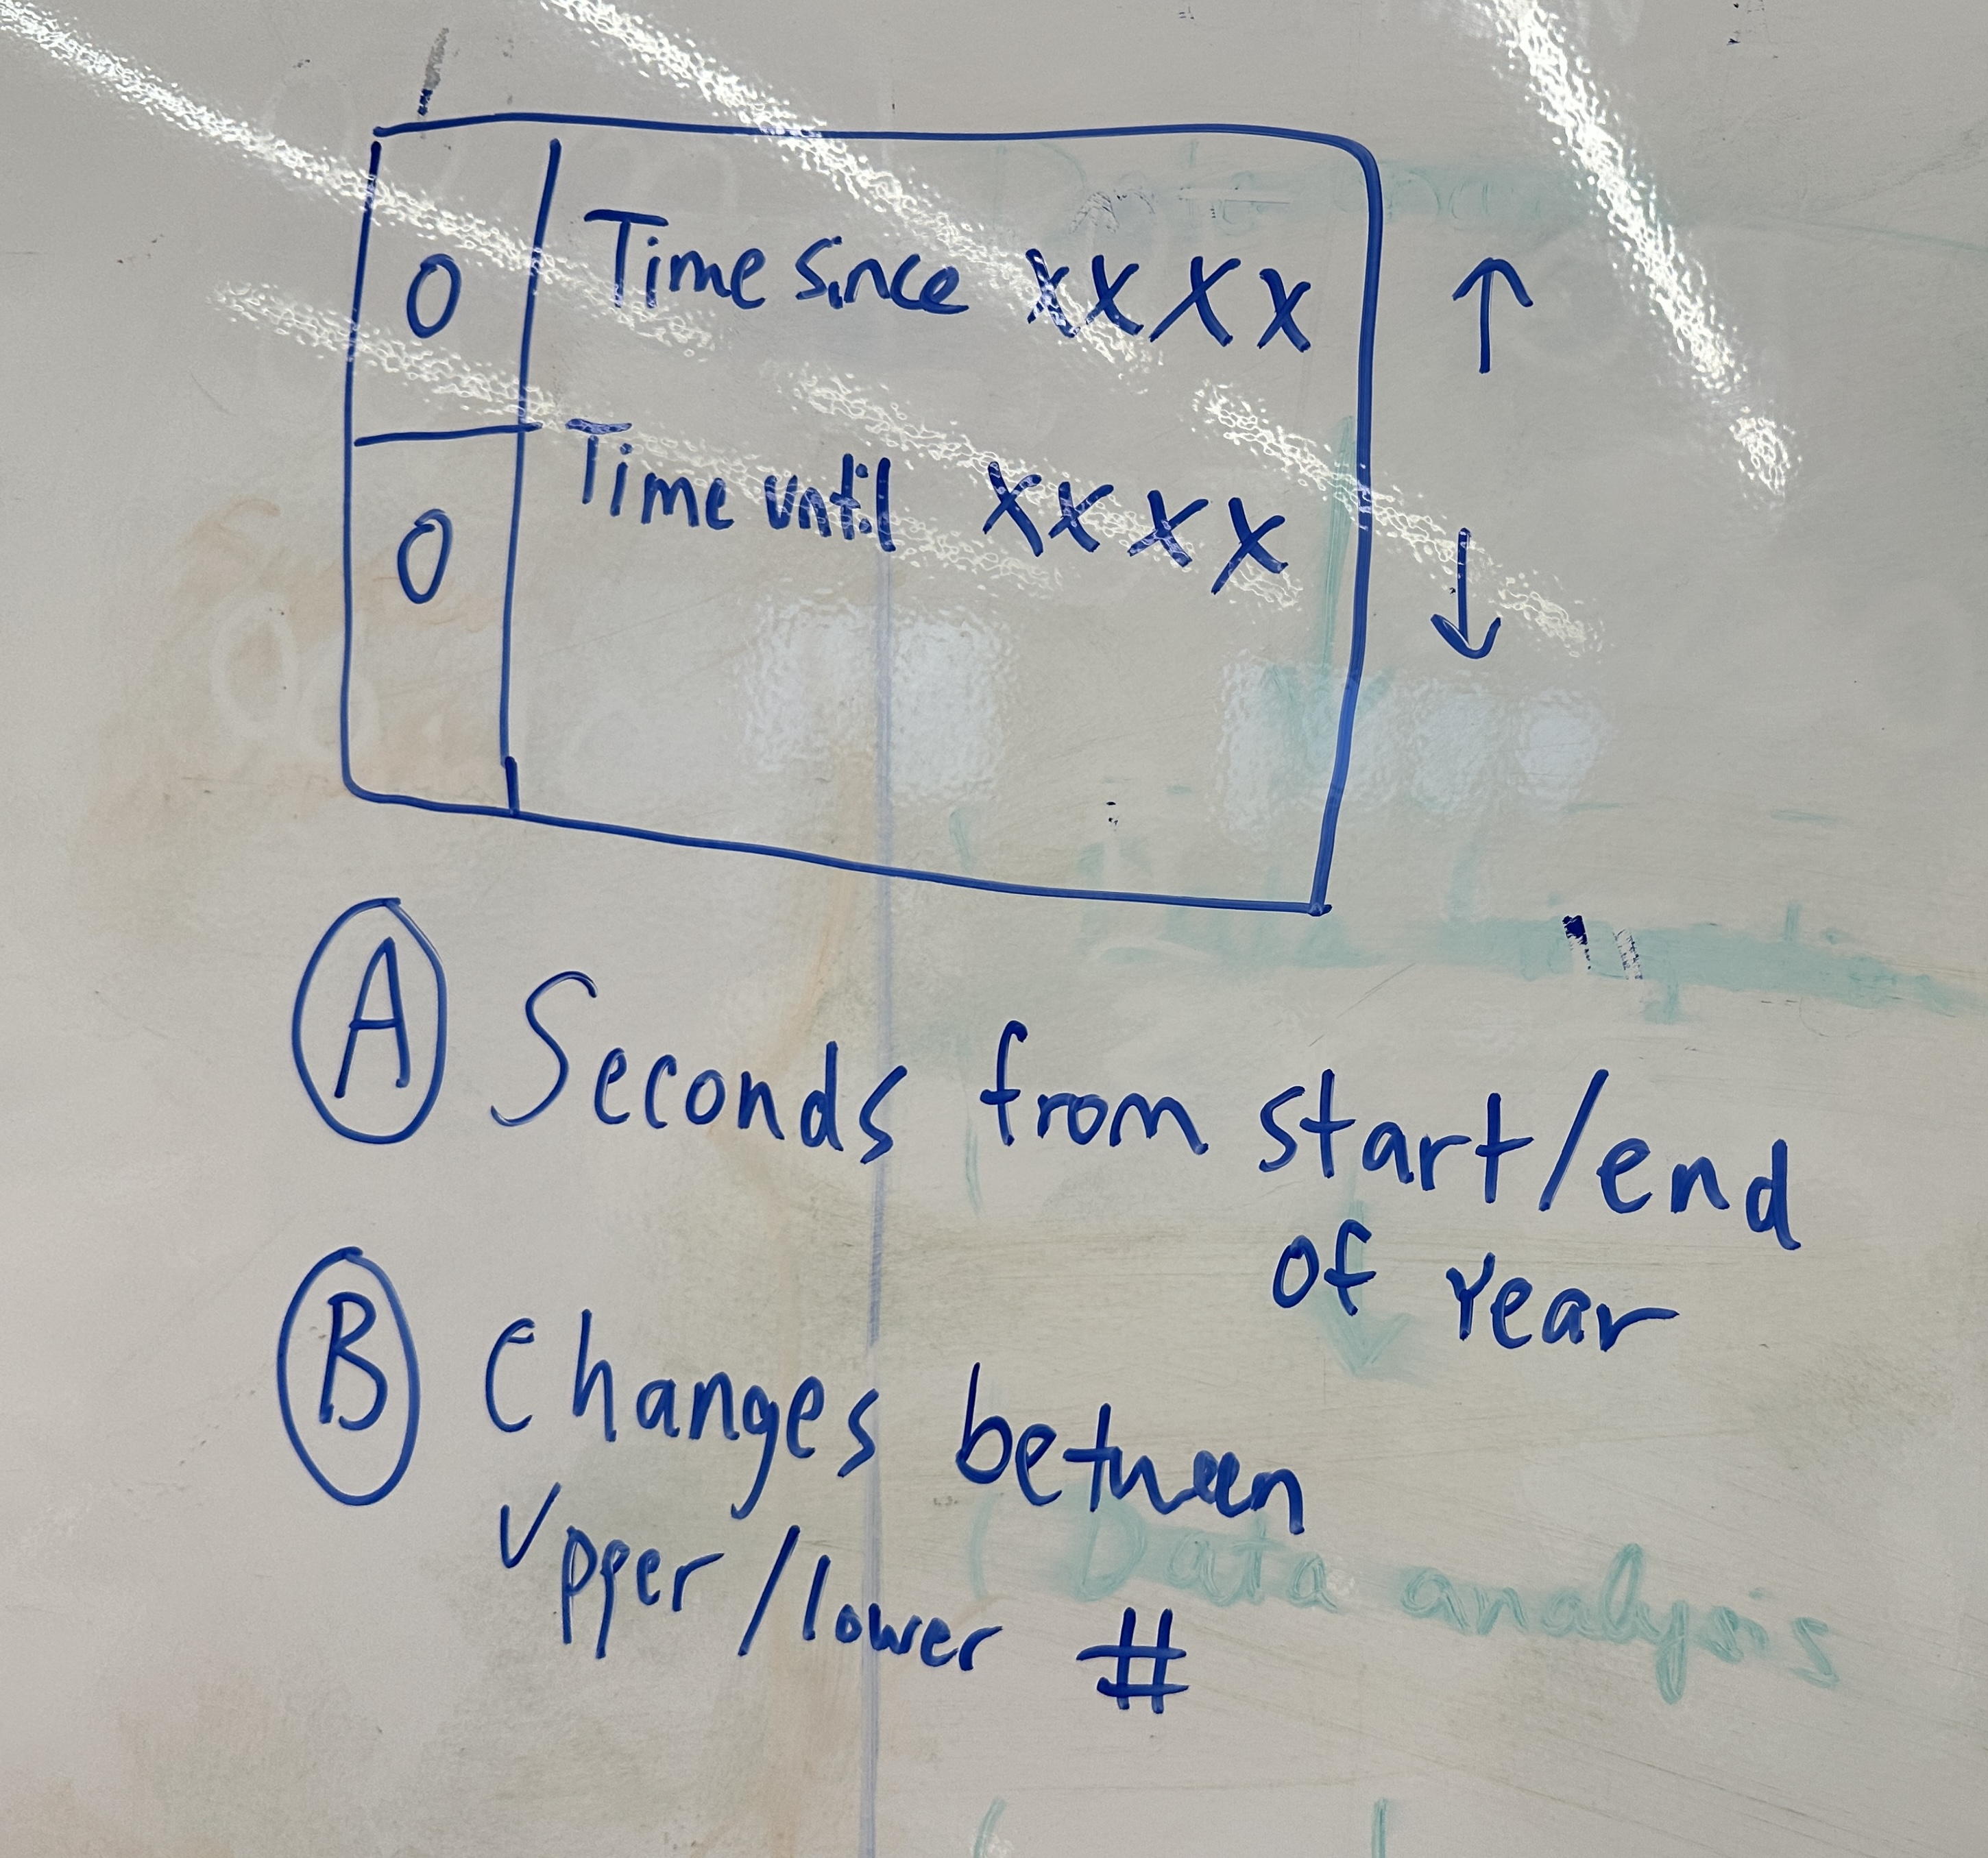 0 Time since xxxx ↑
0 Time until xxxx ↓
A Seconds from start/end
of Year
B Changes between
Upper/lower #
Data analysis